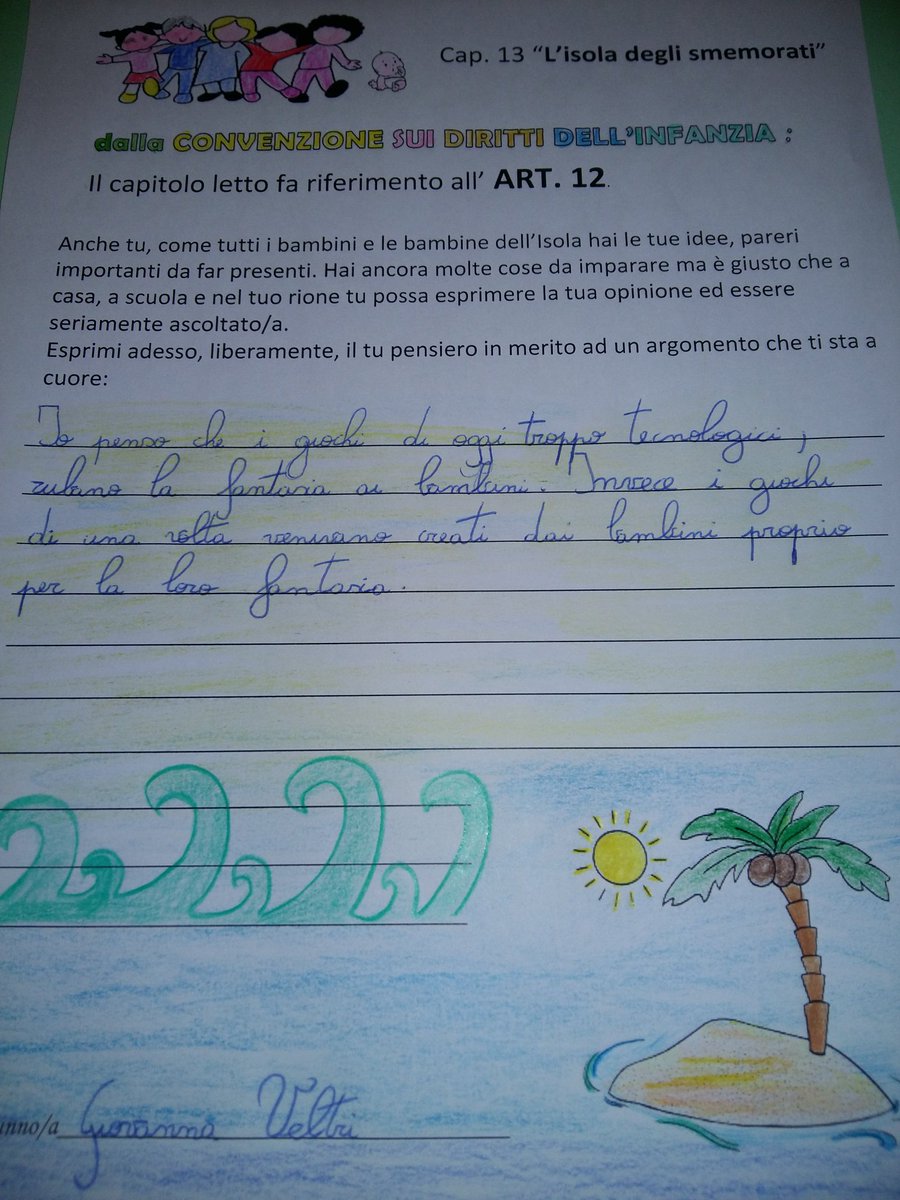 Cap. 13 “L’isola degli smemorati”
dalla CONVENZIONE SUI DIRITTI DELL’INFANZIA :
Il capitolo letto fa riferimento all’ ART. 12.
Anche tu, come tutti i bambini e le bambine dell’Isola hai le tue idee, pareri
importanti da far presenti. Hai ancora molte cose da imparare ma è giusto che a
casa, a scuola e nel tuo rione tu possa esprimere la tua opinione ed essere
seriamente ascoltato/a.
Esprimi adesso, liberamente, il tu pensiero in merito ad un argomento che ti sta a
cuore:
Io penso che i giochi di oggi troppo tecnologici,
rubano la fantasia ai bambini. Invece i giochi
di una volta venivano creati dai bambini proprio
per la loro fantasia.
unno/a Giovanna Veltri